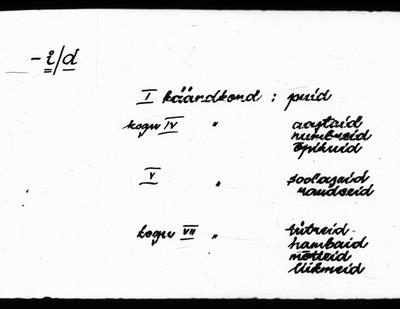 - i/d
I käändkond : puid
kogu IV " aastaid
numbreid
õpikuid
V " soolaseid
raudseid
kogu VII " tütreid
hambaid
mõtteid
liikmeid